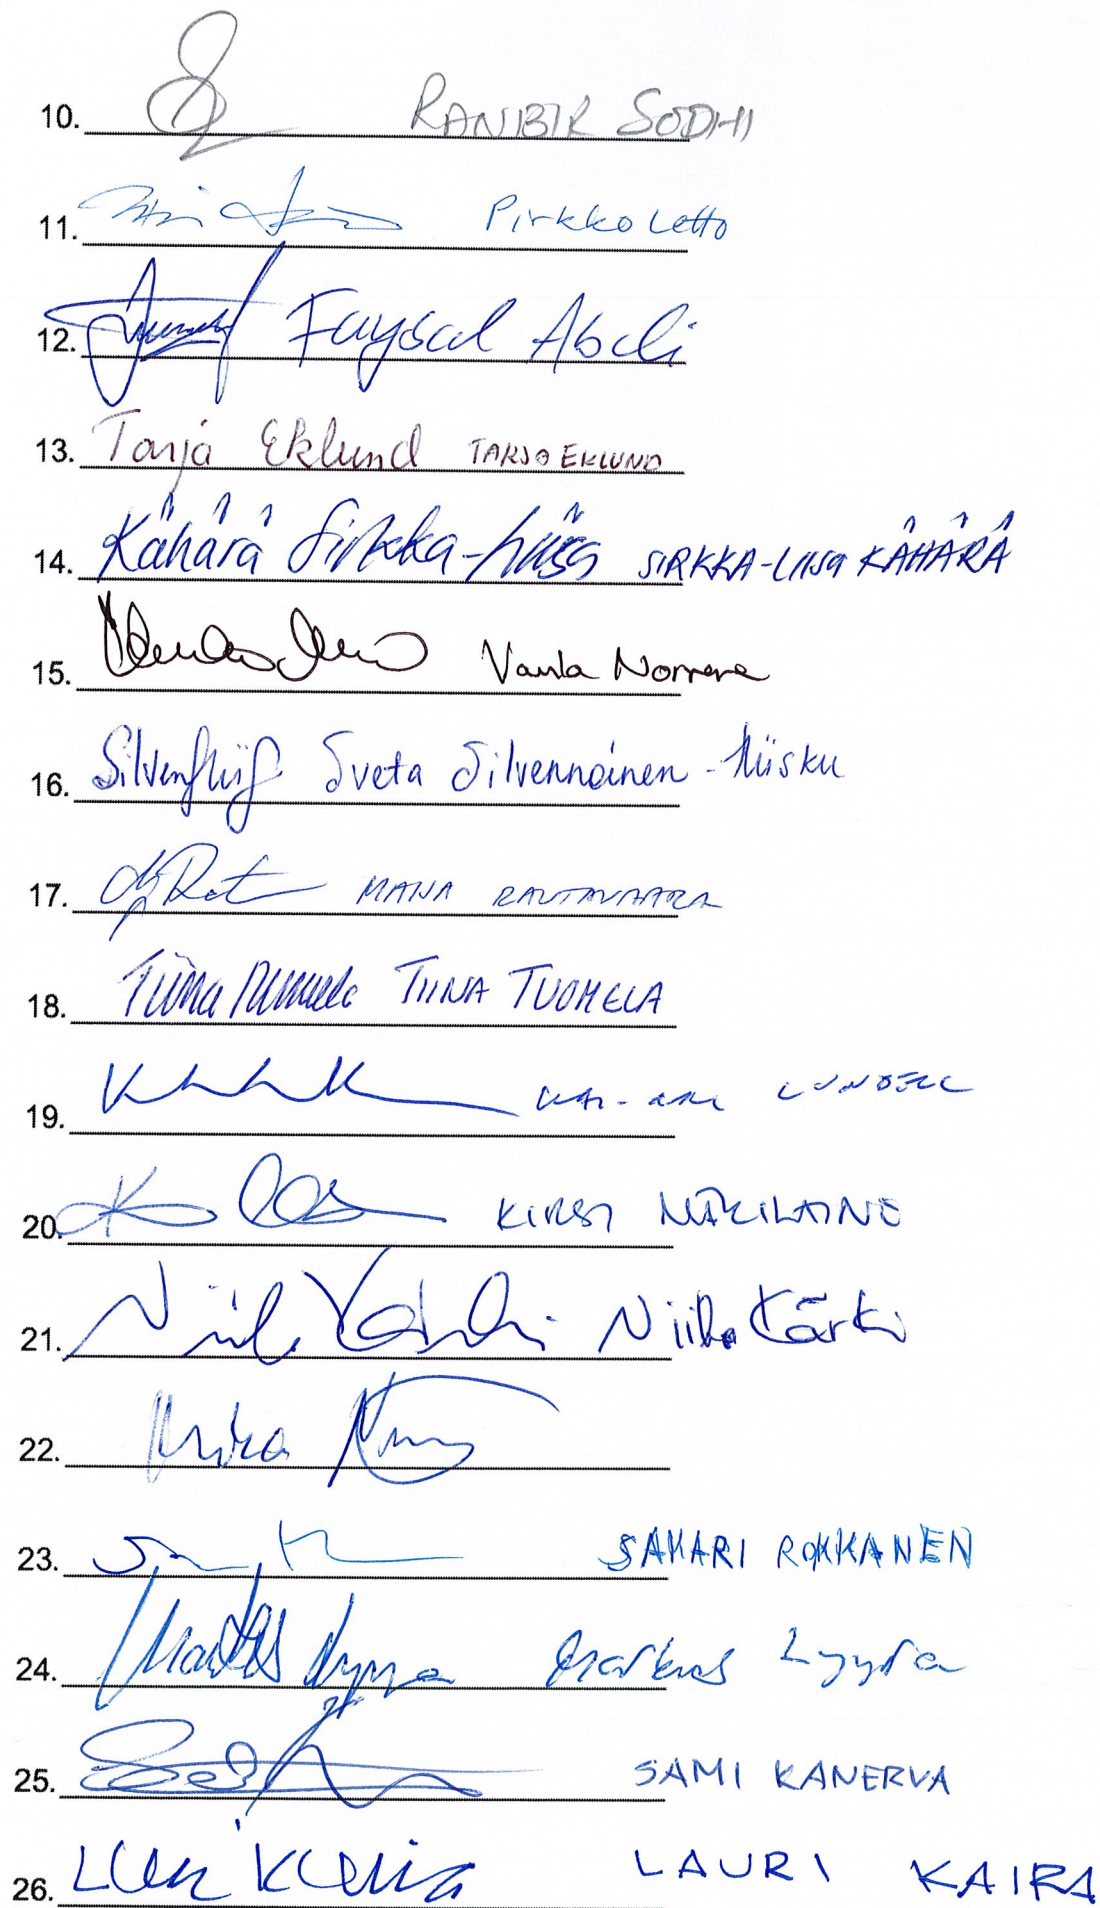 10. RANIBIR SODHI
11. Pirkko Letto
12. Faysal Abdi
13. Tarja Eklund TARJA EKLUND
14. Kähärä Sirkka-Liisa SIRKKA-LIISA KÄHÄRÄ
15. Vaula Norrena
16. Sveta Silvennoinen-Hiisku
17. MAIJA RAUTAVAARA
18. Tiina Tuomela TIINA TUOMELA
19. KAI-ARI LUNDELL
20. KIRSI
21. Niilo Kärki
22. Mika
23. SAKARI ROKKANEN
24. Markus Lyyra
25. SAMI KANERVA
26. Lauri Kaira LAURI KAIRA